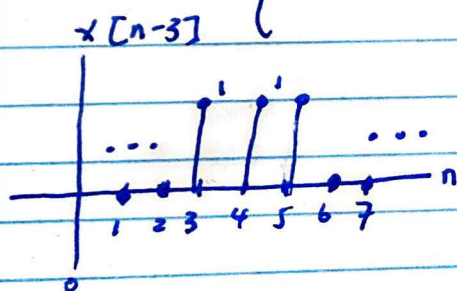 x [n-3]
1 1
... ...
n
1 2 3 4 5 6 7
0